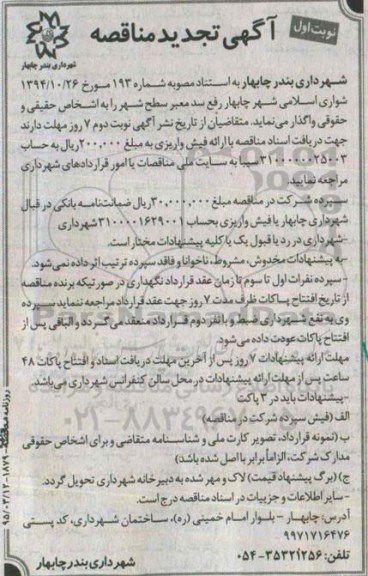 نوبت اول
آگهی تجدید مناقصه
شهرداری بندر چابهار
شهرداری بندر چابهار به استناد مصوبه شماره ۱۹۳ مورخ ۱۳۹۴/۱۰/۲۶
شورای اسلامی شهر چابهار رفع سد معبر سطح شهر را به اشخاص حقیقی و
حقوقی واگذار می‌نماید. متقاضیان از تاریخ نشر آگهی نوبت دوم ۷ روز مهلت دارند
جهت دریافت اسناد مناقصه با ارائه فیش واریزی به مبلغ ۲۰۰,۰۰۰ ریال به حساب
سیبا به سایت ملی مناقصات یا امور قراردادهای شهرداری
مراجعه نمایید.
سپرده شرکت در مناقصه مبلغ ۳۰,۰۰۰,۰۰۰ ریال ضمانت‌نامه بانکی در قبال
شهرداری چابهار یا فیش واریزی بحساب ۳۱۰۰۰۰۱۶۲۹۰۰۱ شهرداری
-شهرداری در رد یا قبول یک یا کلیه پیشنهادات مختار است.
-به پیشنهادات مخدوش، مشروط، ناخوانا و فاقد سپرده ترتیب اثر داده نمی‌شود.
-سپرده نفرات اول تا سوم تا زمان عقد قرارداد نگهداری در صورتیکه برنده مناقصه
از تاریخ افتتاح پاکات ظرف مدت ۷ روز جهت عقد قرارداد مراجعه ننماید سپرده
وی به نفع شهرداری ضبط و با نفر دوم قرارداد منعقد می‌گردد و الباقی پس از
افتتاح پاکات عودت داده می‌شود.
مهلت ارائه پیشنهادات ۷ روز پس از آخرین مهلت دریافت اسناد و افتتاح پاکات ۴۸
ساعت پس از مهلت ارائه پیشنهادات در محل سالن کنفرانس شهرداری می‌باشد.
-پیشنهادات باید در ۳ پاکت
الف) (فیش سپرده شرکت در مناقصه)
ب) (نمونه قرارداد، تصویر کارت ملی و شناسنامه متقاضی و برای اشخاص حقوقی
مدارک شرکت، الزاماً برابر با اصل شده باشد)
ج) (برگ پیشنهاد قیمت) لاک و مهر شده به دبیرخانه شهرداری تحویل گردد.
-سایر اطلاعات و جزییات در اسناد مناقصه درج است.
آدرس: چابهار - بلوار امام خمینی (ره)، ساختمان شهرداری، کد پستی
۹۹۷۱۷۱۶۴۷۶
تلفن: ۳۵۳۲۱۲۵۶-۰۵۴
شهرداری بندر چابهار